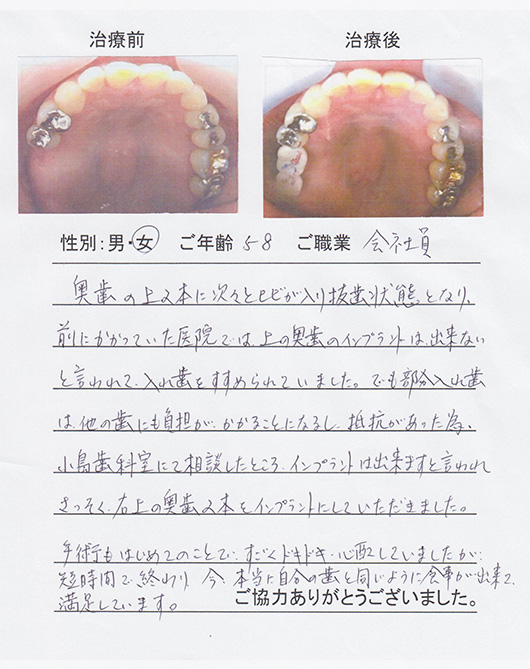 治療前 治療後
性別：男・女 ご年齢 58 ご職業 会社員
奥歯の上2本に次々とヒビが入り抜歯状態となり、
前にかかっていた医院では、上の奥歯のインプラントは、出来ない
と言われて、入れ歯をすすめられていました。でも部分入れ歯
は、他の歯にも負担が、かかることになるし、抵抗があった為、
小島歯科室にて相談したところ、インプラントは出来ますと言われ
さっそく、右上の奥歯2本をインプラントにしていただきました。
手術もはじめてのことで、すごくドキドキ・心配していましたが、
短時間で終わり 今、本当に自分の歯と同じように食事が出来て、
満足しています。 ご協力ありがとうございました。